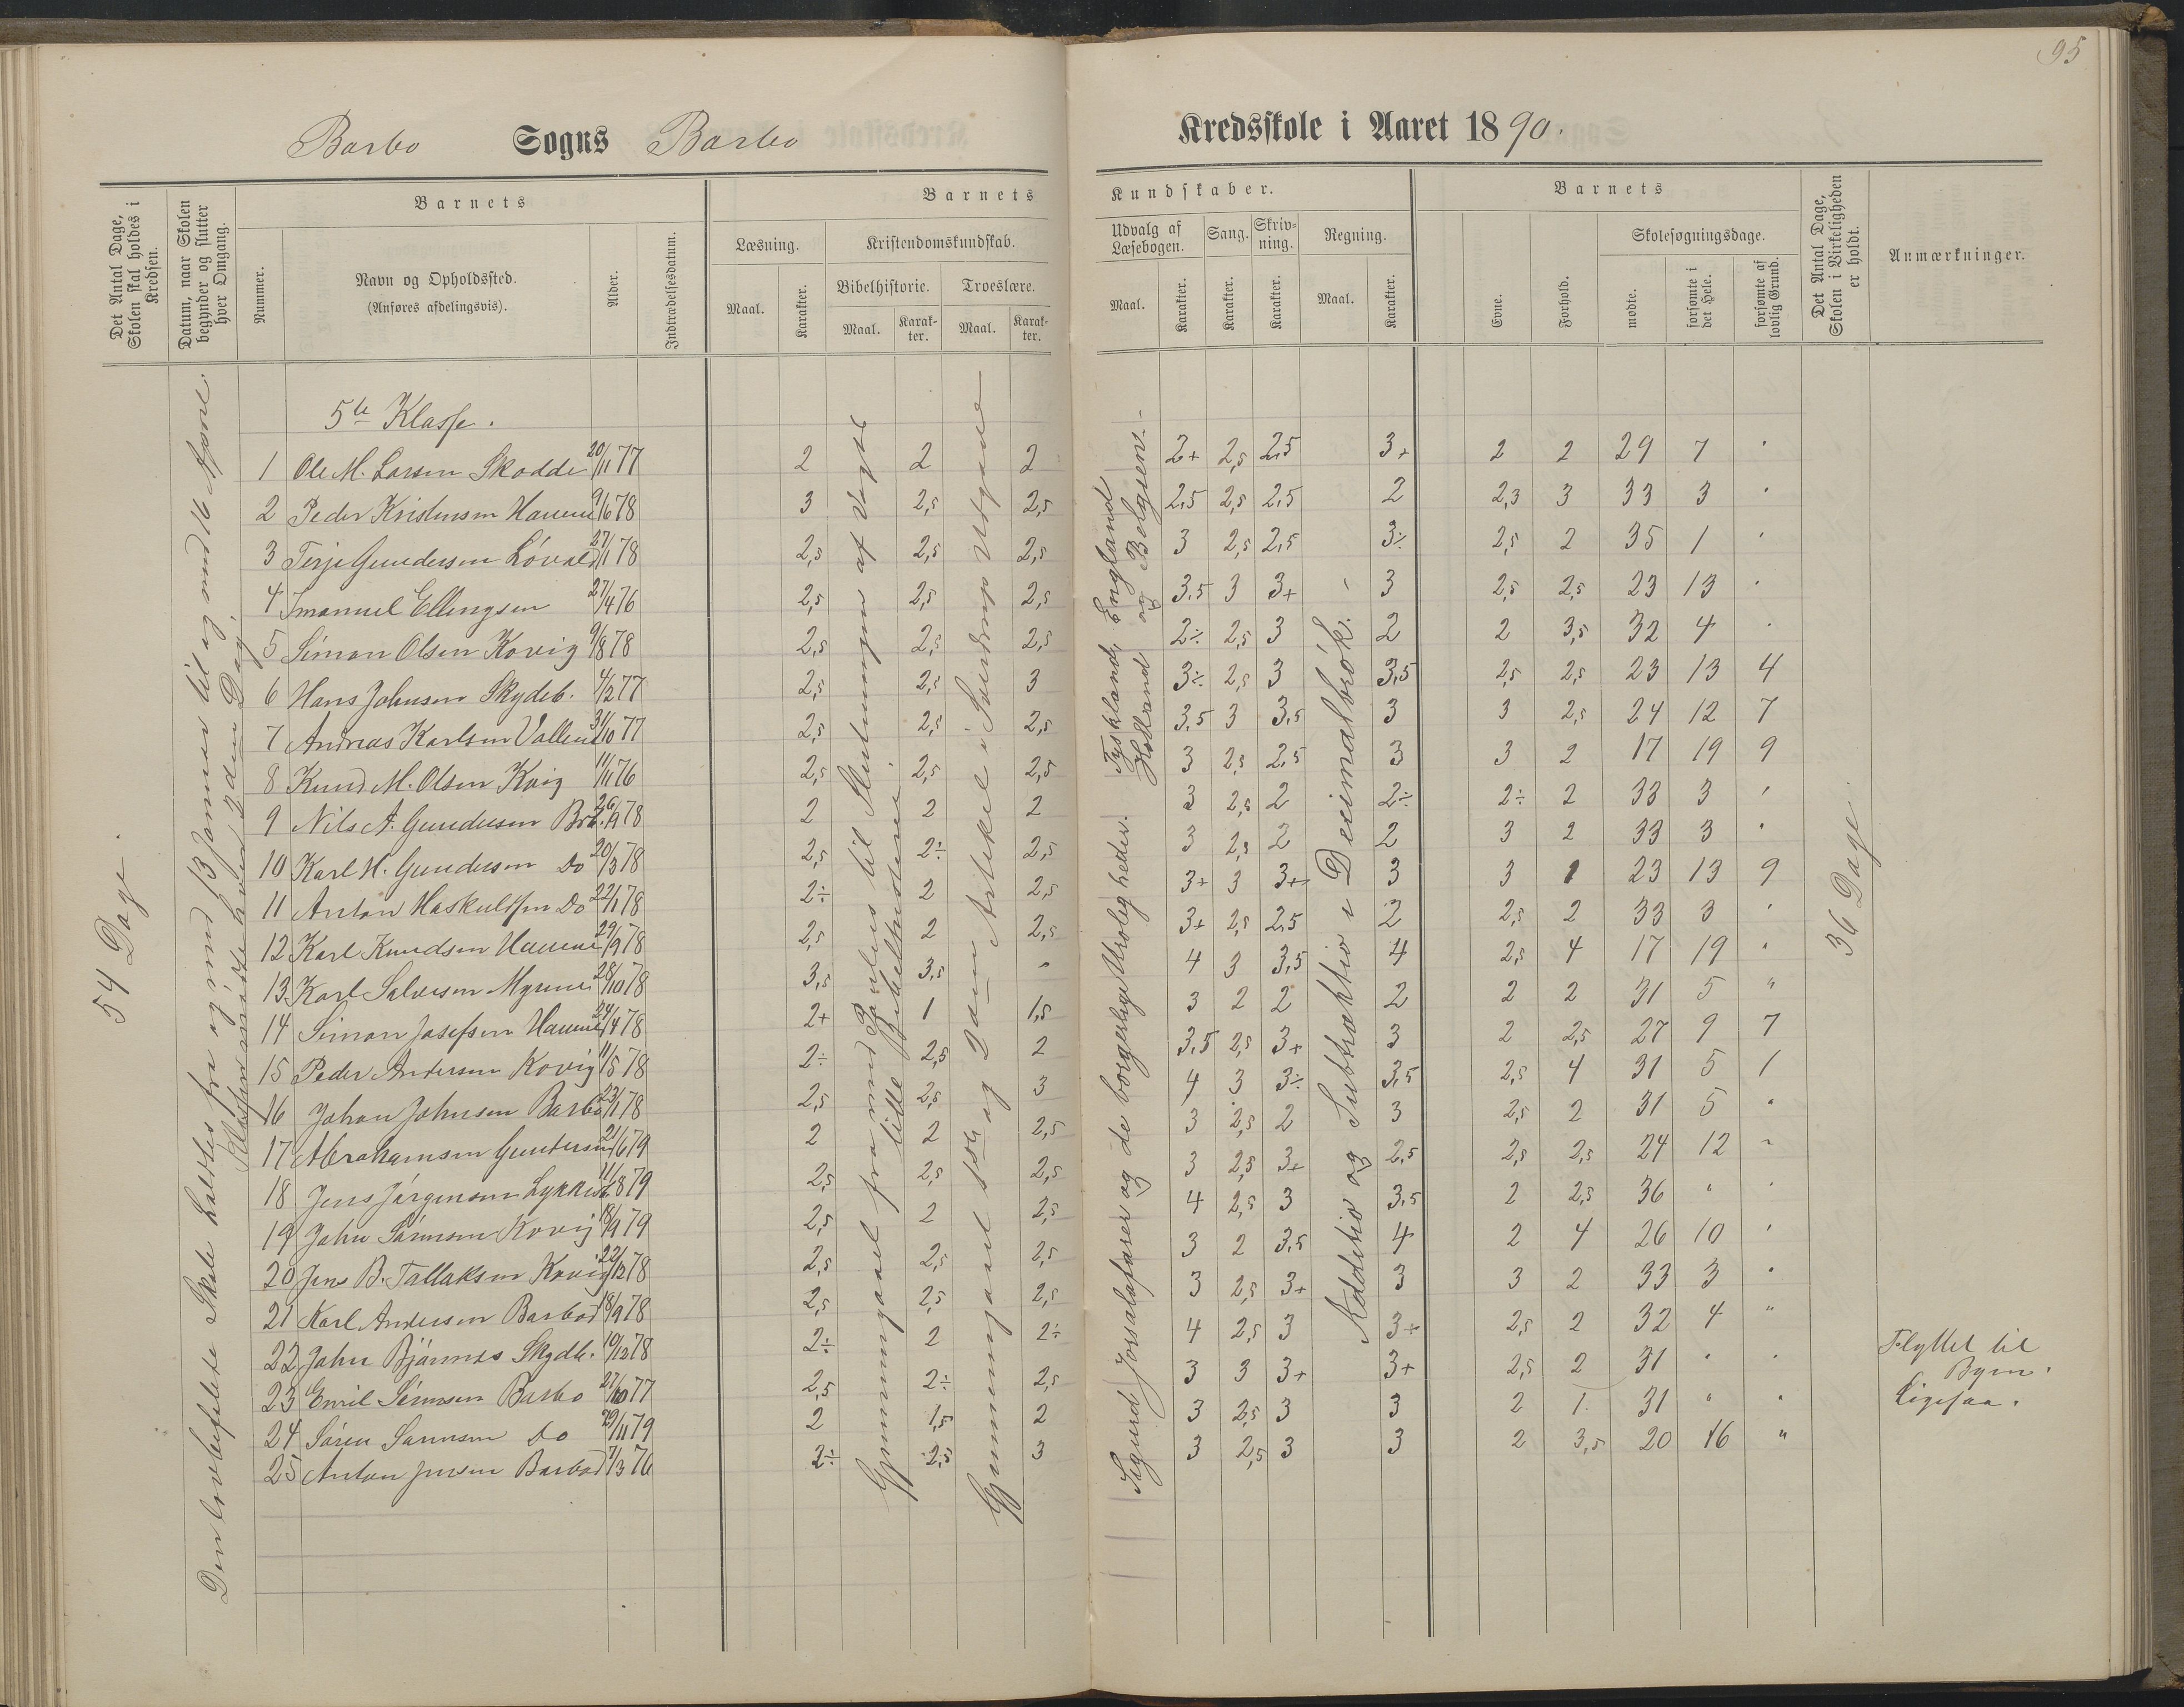 95
Barbo Sogns Barbo Kredsskole i Aaret 1890.
Det Antal Dage, Skolen skal holdes i Kredsen.
Datum, naar Skolen begynder og slutter hver Omgang.
Barnets
Nummer.
Navn og Opholdssted.
(Anføres afdelingsvis).
Alder.
Indtrædelsesdatum.
Barnets Kundskaber.
Læsning.
Maal.
Karakter.
Kristendomskundskab.
Bibelhistorie.
Maal.
Karakter.
Troeslære.
Maal.
Karakter.
Udvalg af Læsebogen.
Maal.
Karakter.
Sang.
Karakter.
Skrivning.
Karakter.
Regning.
Maal.
Karakter.
Barnets
Evne.
Forhold.
Skolesøgningsdage.
mødte.
forsømte i det Hele.
forsømte af lovlig Grund.
Det Antal Dage, Skolen i Virkeligheden er holdt.
Anmærkninger.
54 Dage.
Den lovbefalede Skole holdtes fra og med 13 Januar til og med 16 April.
Klassen mødte hver 2den Dag.
5te Klasse.
1 Ole M. Larsen Skodde 20/11 77 2 2 2 2+ 2,5 2,5 3+ 2 2 29 7 "
2 Peder Kristensen 9/6 78 3 2,5 2,5 2,5 2,5 2,5 2 2,3 3 33 3 "
3 Terje Gundersen Løvold 27/1 78 2,5 2,5 2,5 3 2,5 2,5 3÷ 2,5 2 35 1 "
4 Imanuel Ellingsen 27/4 76 2,5 2,5 2,5 3,5 3 3+ 3 2,5 2,5 23 13 "
5 Simon Olsen Kovig 9/8 78 2,5 2,5 2,5 2÷ 2,5 3 2 2 3,5 32 4 "
6 Hans Johnsen Skydeb. 4/2 77 2,5 2,5 3 3÷ 2,5 3 3,5 2,5 2,5 23 13 4
7 Andreas Karlsen 31/10 77 2,5 2,5 2,5 3,5 3 3,5 3 3 2,5 24 12 7
8 Knud M. Olsen Kvig 11/11 76 2,5 2,5 2,5 3 2,5 2,5 3 3 2 17 19 9
9 Nils A. Gundersen 26/9 78 2 2 2 3 2,5 2 2÷ 2÷ 2 33 3 "
10 Karl H. Gundersen Do 20/3 78 2,5 2÷ 2,5 3 2,5 2 2 3 2 33 3 "
11 Anton Haskuldsen Do 22/1 78 2÷ 2 2,5 3+ 3 3+ 3 3 1 23 13 9
12 Karl Knudsen 29/9 78 2,5 2 2,5 3+ 2,5 2,5 2 2,5 2 33 3 "
13 Karl Salvesen Myrene 28/10 78 3,5 3,5 " 4 3 3,5 4 2,5 4 17 19 "
14 Simon Josefsen 24/4 78 2+ 1 1,5 3 2 2 2 2 2 31 5 "
15 Peder Andersen Kovig 11/5 78 2÷ 2,5 2 3,5 2,5 3+ 3 2 2,5 27 9 7
16 Johan Johnsen Barbo 23/1 78 2,5 2,5 3 4 3 3÷ 3,5 2,5 4 31 5 1
17 Abrahamsen Gundersen 21/6 79 2 2 2,5 3 2,5 2 3 2,5 2 31 5 "
18 Jens Jørgensen 11/8 79 2,5 2,5 2,5 3 2,5 3+ 2,5 2,5 2,5 24 12 "
19 John Sørensen Kovig 18/9 79 2,5 2 2,5 4 2,5 3 3,5 2 2,5 36 " "
20 Jens B. Tallaksen Kovig 22/12 78 2,5 2,5 2,5 3 2 3,5 4 2 4 26 10 "
21 Karl Andersen Barbo 18/9 78 2,5 2,5 2,5 3 2,5 3+ 3 3 2 33 3 "
22 John Bjønnes Skydb. 10/12 78 2÷ 2 2÷ 4 2,5 3 3+ 2,5 2 32 4 "
23 Emil Simonsen Barbo 27/10 77 2,5 2÷ 2,5 3 3 3+ 3+ 2,5 2 31 " " Flyttet til Byen.
24 Søren Sørensen Do 29/11 79 2 1,5 2 3 2,5 3 3 2 1. 31 " " Ligesaa.
25 Anton Jensen Barbo 7/3 76 2÷ 2,5 3 3 2,5 3 3 2 3,5 20 16 "
Gjennemgaaet fra og med Paulus til Slutningen af
lille Bibelhistorie
Gjennemgaaet 1ste og 2den Artikel i Sverdrup
Sigurd Jorsalafarer og de borgerlige Uroligheder.
Tyskland, England
Holland og Belgien.
Addition og Subtraktion i Decimalbrøk.
36 Dage.